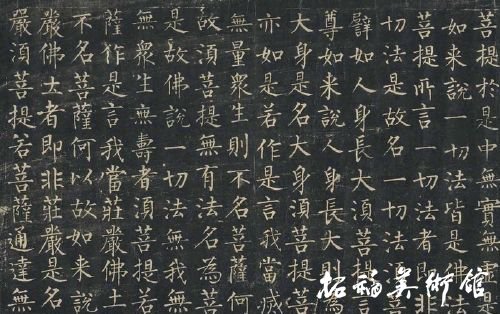 菩提於是中無實無虛是
如来說一切法皆是佛法
菩提所言一切法者即非
切法是故名一切法須菩
譬如人身長大須菩提言
尊如来說人身長大則為
大身是名大身須菩提菩
亦如是若作是言我當滅
無量衆生則不名菩薩何
故須菩提無有法名為菩
是故佛說一切法無我無
無衆生無壽者須菩提若
薩作是言我當莊嚴佛土
不名菩薩何以故如来說
嚴佛土者即非莊嚴是名
嚴須菩提若菩薩通達無
拓美術館